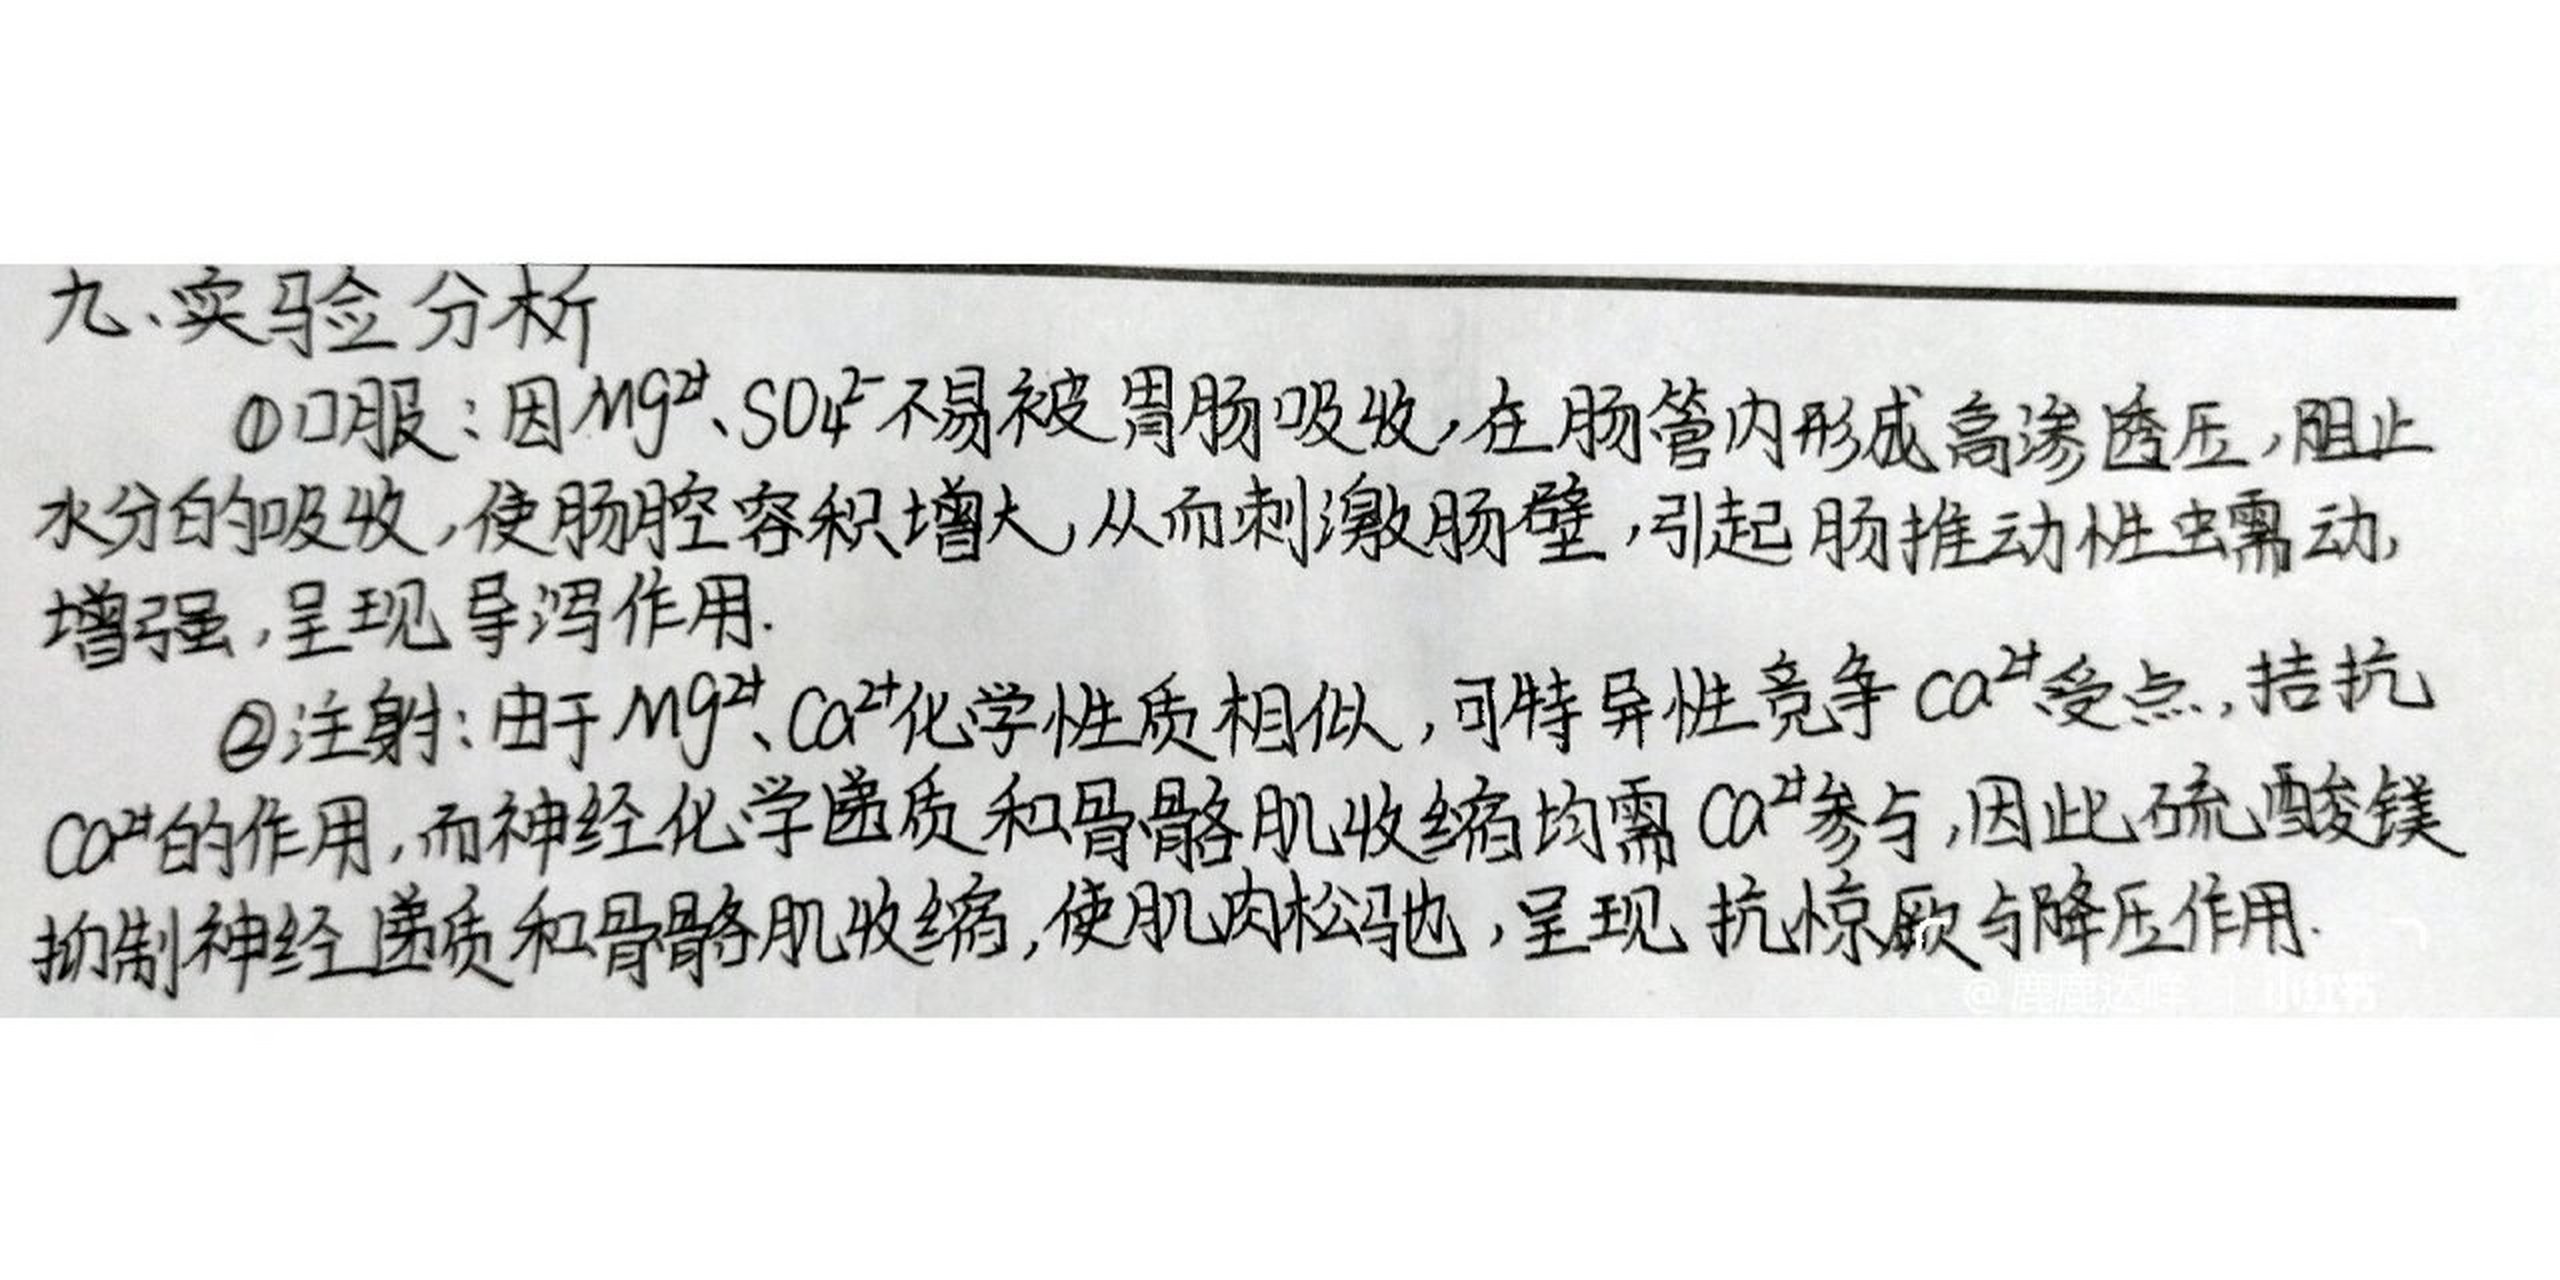 九、实验分析
①口服：因Mg²⁺、SO₄²⁻不易被胃肠吸收，在肠管内形成高渗透压，阻止
水分的吸收，使肠腔容积增大，从而刺激肠壁，引起肠推动性蠕动，
增强，呈现导泻作用.
②注射：由于Mg²⁺、Ca²⁺化学性质相似，可特异性竞争Ca²⁺受点，拮抗
Ca²⁺的作用，而神经化学递质和骨骼肌收缩均需Ca²⁺参与，因此硫酸镁
抑制神经递质和骨骼肌收缩，使肌肉松驰，呈现抗惊厥与降压作用.
@鹿鹿达 小红书